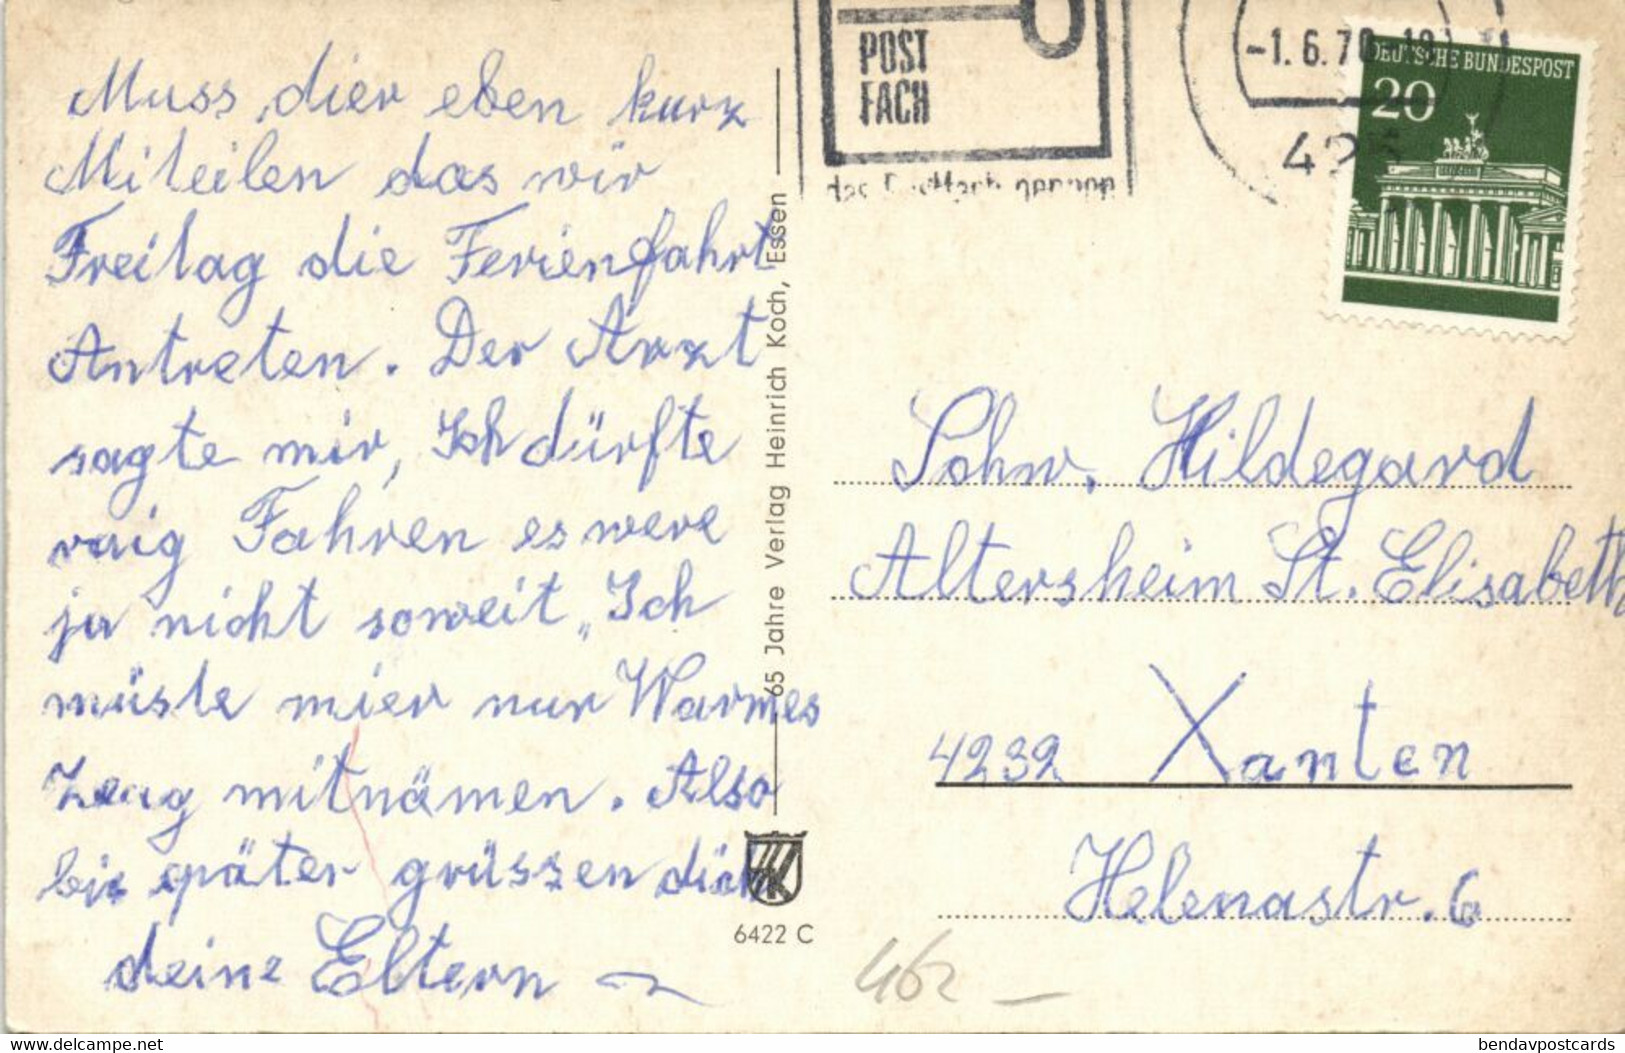 Muss dier eben kurz
Miteilen das wir
Freitag die Ferienfahrt
Antreten. Der Arzt
sagte mir, Ich dürfte
ruig Fahren es were
ja nicht soweit, Ich
müste mier nur Warmes
Zeug mitnämen. Also
bis später grüssen dich
deine Eltern
65 Jahre Verlag Heinrich Koch, Essen
6422 C
POST
FACH
-1.6.70
DEUTSCHE BUNDESPOST
20
Schw. Hildegard
Altersheim St. Elisabeth
4232 Xanten
Helenastr. 6
delcampe.net
bendavpostcards